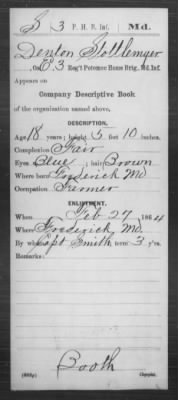 S 3 P. H. B. Inf. Md.
Denton Stottlemyer
Co. B, 3 Reg't Potomac Home Brig. Md. Inf.
Appears on
Company Descriptive Book
of the organization named above.
DESCRIPTION.
Age 18 years; height 5 feet 10 inches.
Complexion Fair
Eyes Blue; hair Brown
Where born Frederick Md
Occupation Farmer
ENLISTMENT.
When Feb 27, 1864
Where Frederick, Md.
By whom Capt Smith term 3 y'rs.
Remarks:
Booth
Copyist.